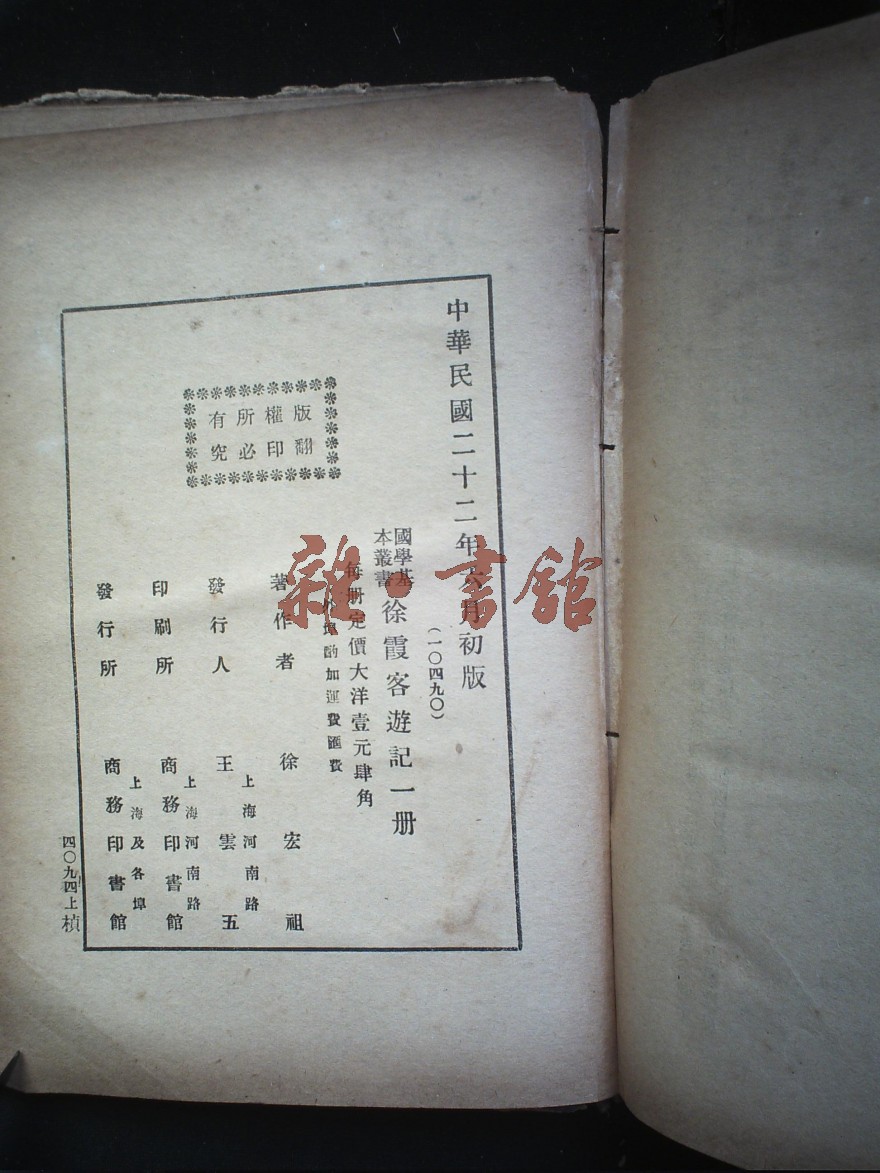 中華民國二十二年六月初版
(一〇四九〇)
國學基
本叢書
徐霞客遊記一册
每册定價大洋壹元肆角
外埠酌加運費匯費
版權所有
翻印必究
著作者 徐宏祖
發行人 王雲五
上海河南路
印刷所 商務印書館
上海河南路
發行所 商務印書館
上海及各埠
四〇九四上
楨
雜·書館